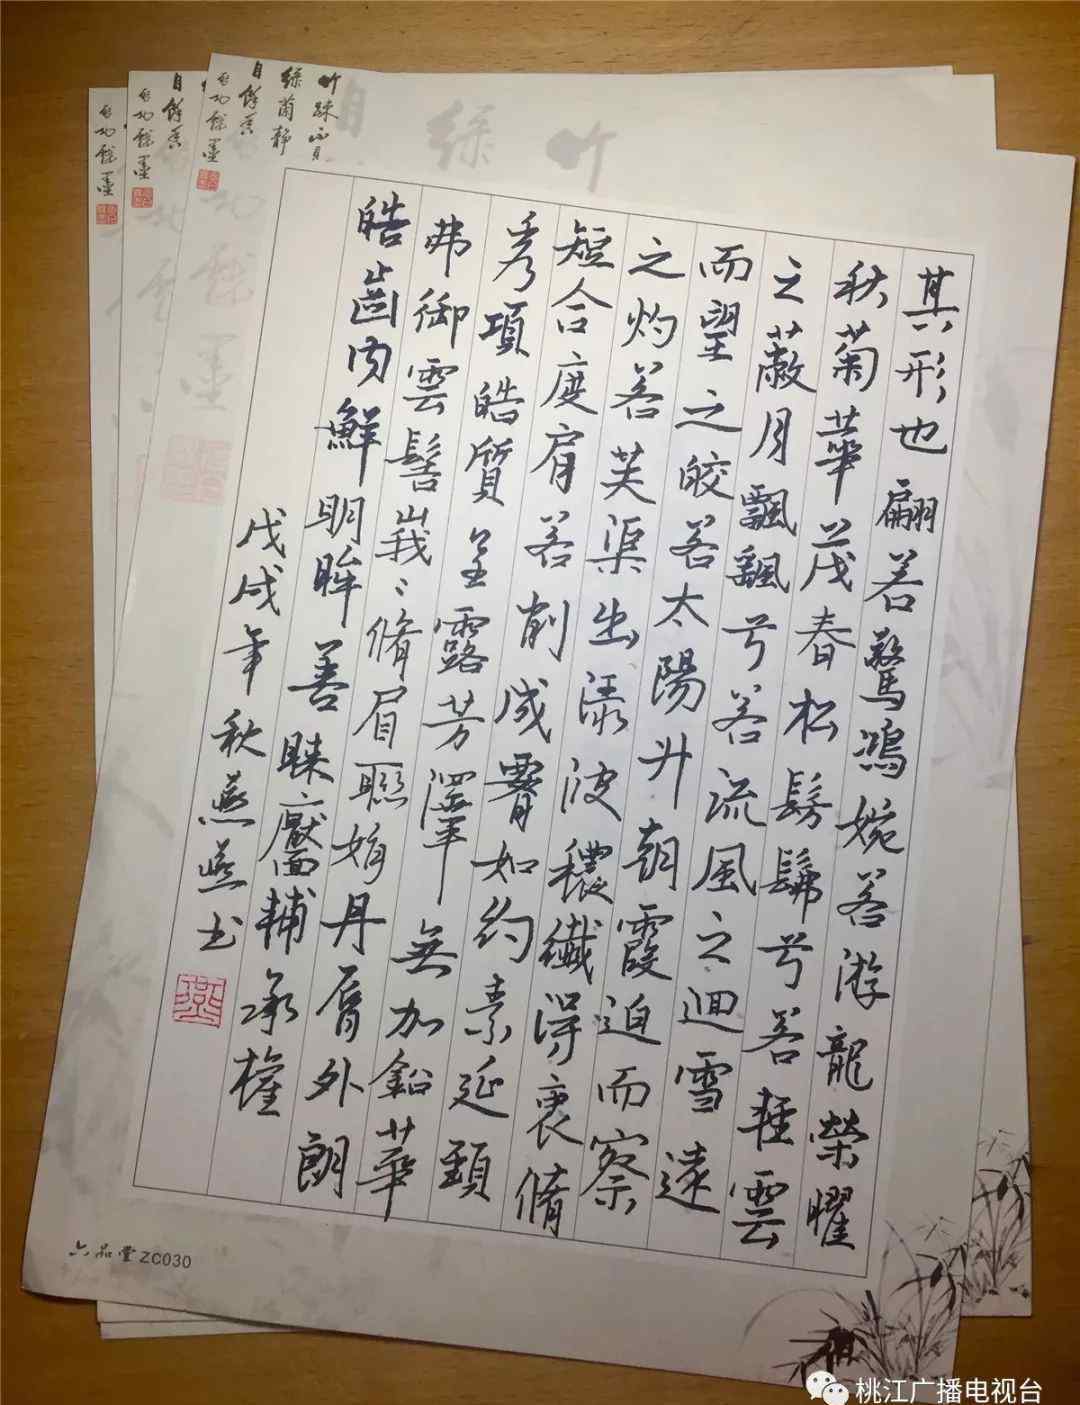 其形也翩若驚鴻婉若游龍榮曜
秋菊華茂春松髣髴兮若輕雲
之蔽月飄飖兮若流風之迴雪遠
而望之皎若太陽升朝霞迫而察
之灼若芙渠出淥波穠纖得衷脩
短合度肩若削成腰如約素延頸
秀項皓質呈露芳澤無加鉛華
弗御雲髻峩〻脩眉聯娟丹脣外朗
皓齒内鮮明眸善睞靨輔承權
戊戌年秋燕燕书
六品堂 ZC030
桃江广播电视台